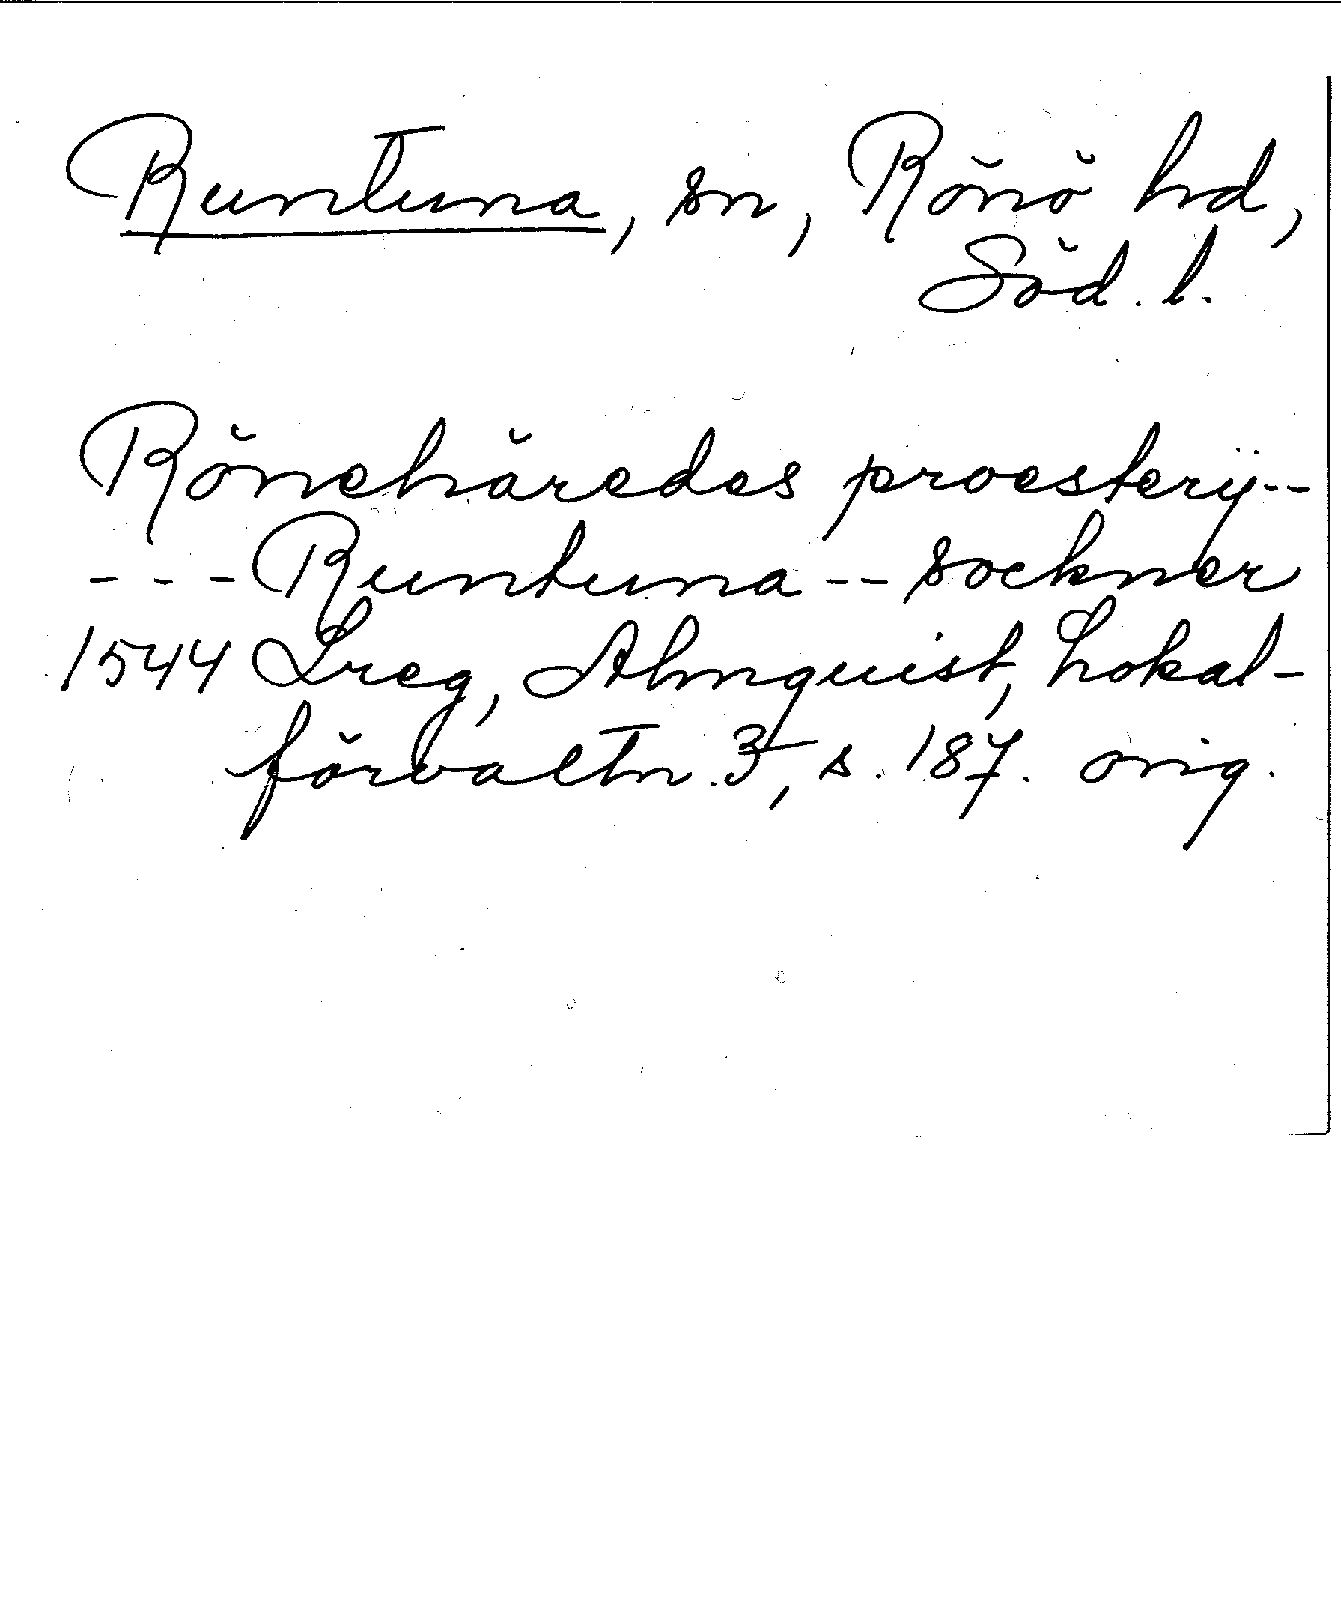 Runtuna, sn, Rönö hd,
Söd. l.
Rönehäredes proesterÿ--
---Runtuna--sockner
1544 Lreg, Almquist, Lokal-
förvaltn. 3, s. 187. orig.